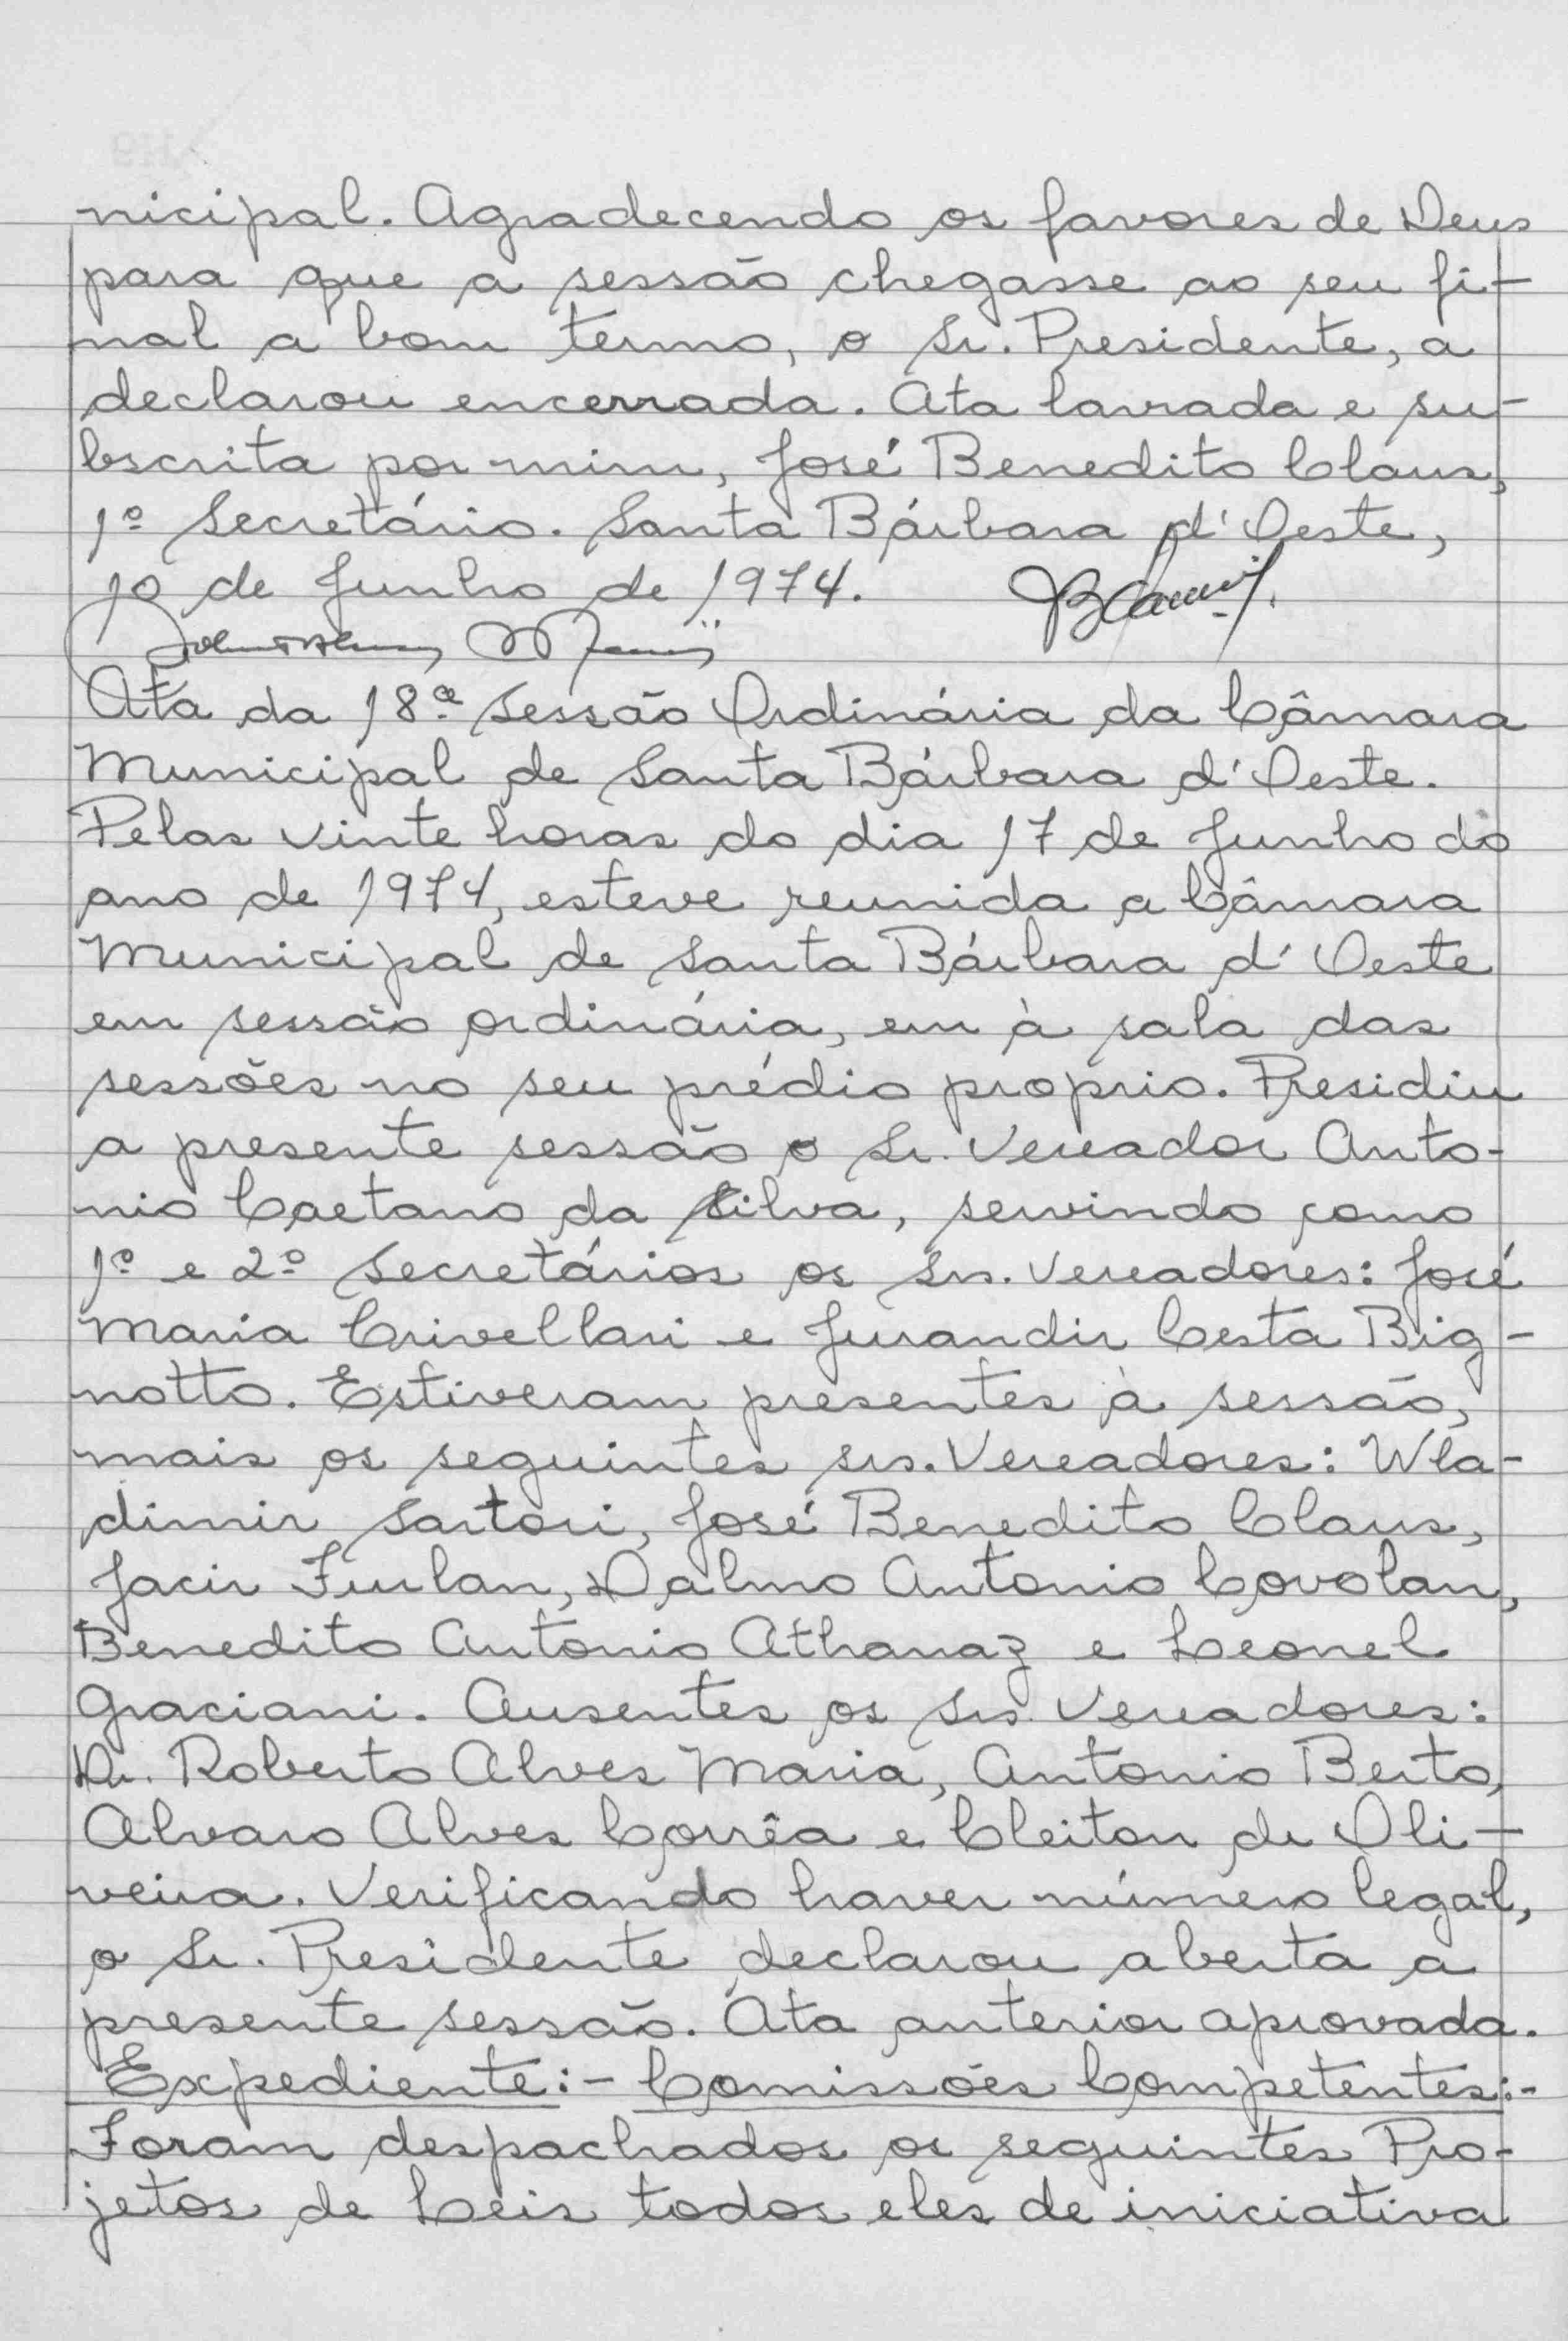 nicipal. Agradecendo os favores de Deus
para que a sessão chegasse ao seu fi-
nal a bom termo, o Sr. Presidente, a
declarou encerrada. Ata lavrada e su-
bscrita por mim, José Benedito Claus,
1º Secretário. Santa Bárbara d'Oeste,
10 de Junho de 1974.
Ata da 18ª Sessão Ordinária da Câmara
Municipal de Santa Bárbara d'Oeste.
Pelas vinte horas do dia 17 de Junho do
ano de 1974, esteve reunida a Câmara
Municipal de Santa Bárbara d'Oeste
em sessão ordinária, em à sala das
sessões no seu prédio proprio. Presidiu
a presente sessão o Sr. Vereador Anto-
nio Caetano da Silva, servindo como
1º e 2º Secretários os Srs. Vereadores: José
Maria Crivellari e Jurandir Cesta Big-
notto. Estiveram presentes à sessão,
mais os seguintes srs. Vereadores: Wla-
dimir Sartori, José Benedito Claus,
Jacir Furlan, Dalmo Antonio Covolan,
Benedito Antonio Athanaz e Leonel
Graciani. Ausentes os Srs. Vereadores:
Dr. Roberto Alves Maria, Antonio Berto,
Alvaro Alves Corrêa e Cleiton de Oli-
veira. Verificando haver número legal,
o Sr. Presidente declarou aberta a
presente sessão. Ata anterior aprovada.
Expediente:- Comissões Competentes:-
Foram despachados os seguintes Pro-
jetos de Leis todos eles de iniciativa